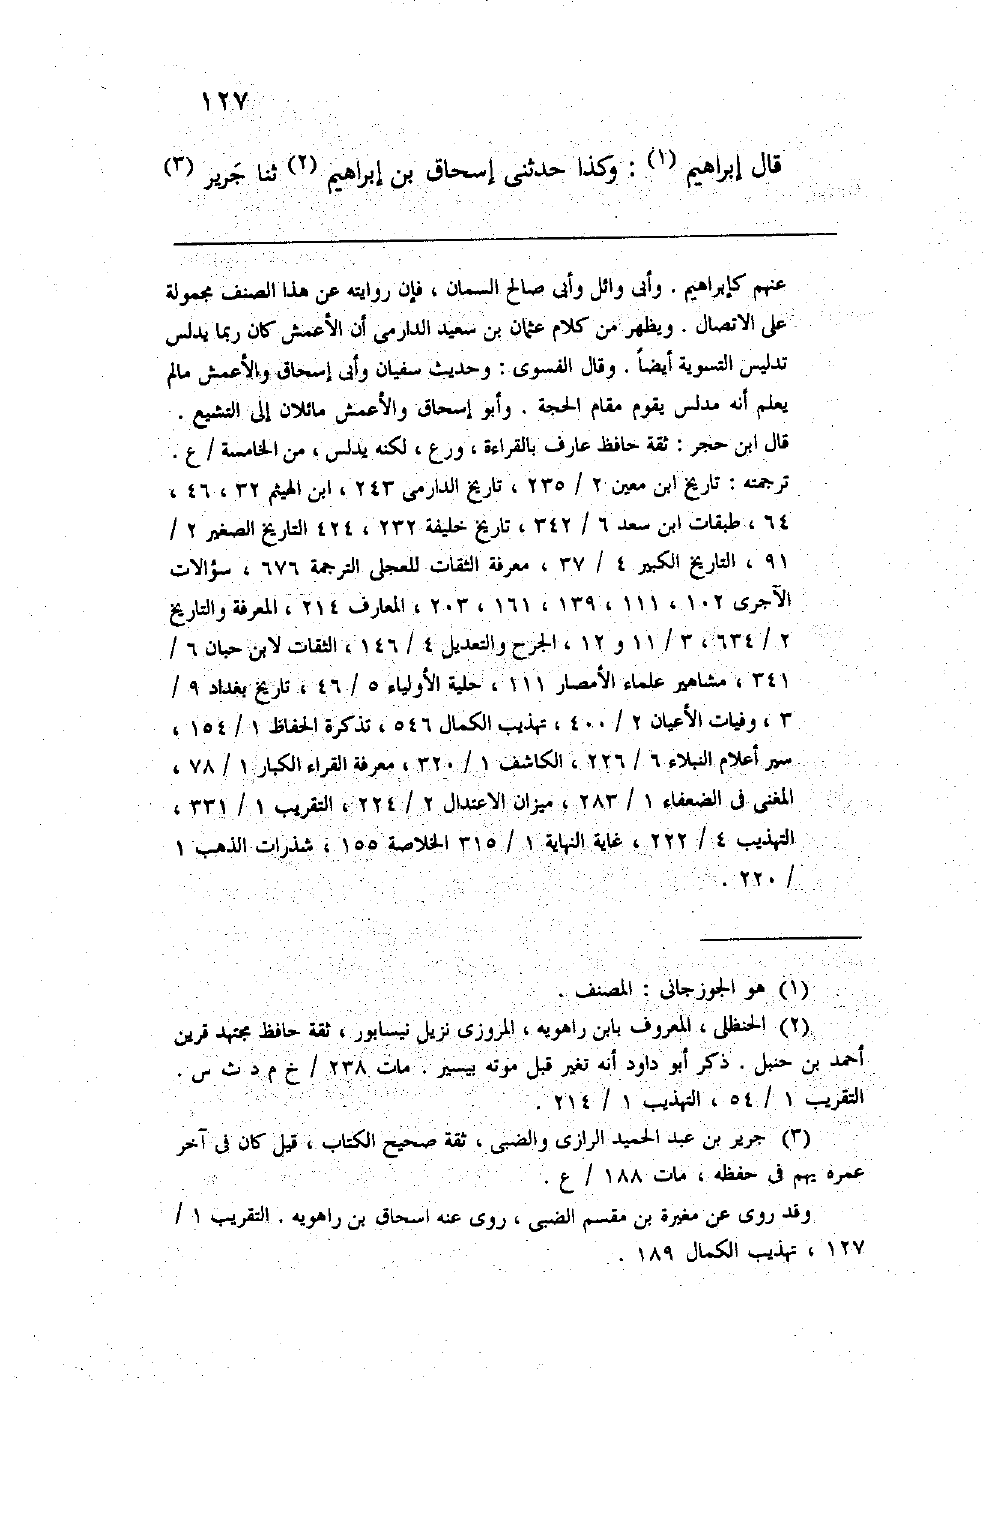 ١٢٧
قال إبراهيم (١) : وكذا حدثنى إسحاق بن إبراهيم (٢) ثنا جَرير (٣)
عنهم كإبراهيم . وأبى وائل وأبى صالح السمان ، فإن روايته عن هذا الصنف محمولة
على الاتصال . ويظهر من كلام عثمان بن سعيد الدارمى أن الأعمش كان ربما يدلس
تدليس التسوية أيضاً . وقال الفسوى : وحديث سفيان وأبى إسحاق والأعمش مالم
يعلم أنه مدلس يقوم مقام الحجة . وأبو إسحاق والأعمش مائلان إلى التشيع .
قال ابن حجر : ثقة حافظ عارف بالقراءة ، ورع ، لكنه يدلس ، من الخامسة / ع .
ترجمته : تاريخ ابن معين ٢ / ٢٣٥ ، تاريخ الدارمى ٢٤٣ ، ابن الهيثم ٣٢ ، ٤٦ ،
٦٤ ، طبقات ابن سعد ٦ / ٣٤٢ ، تاريخ خليفة ٢٣٢ ، ٤٢٤ التاريخ الصغير ٢ /
٩١ ، التاريخ الكبير ٤ / ٣٧ ، معرفة الثقات للعجلى الترجمة ٦٧٦ ، سؤالات
الآجرى ١٠٢ ، ١١١ ، ١٣٩ ، ١٦١ ، ٢٠٣ ، المعارف ٢١٤ ، المعرفة والتاريخ
٢ / ٦٣٤ ، ٣ / ١١ و ١٢ ، الجرح والتعديل ٤ / ١٤٦ ، الثقات لابن حبان ٦ /
٣٤١ ، مشاهير علماء الأمصار ١١١ ، حلية الأولياء ٥ / ٤٦ ، تاريخ بغداد ٩ /
٣ ، وفيات الأعيان ٢ / ٤٠٠ ، تهذيب الكمال ٥٤٦ ، تذكرة الحفاظ ١ / ١٥٤ ،
سير أعلام النبلاء ٦ / ٢٢٦ ، الكاشف ١ / ٣٢٠ ، معرفة القراء الكبار ١ / ٧٨ ،
المغنى فى الضعفاء ١ / ٢٨٣ ، ميزان الاعتدال ٢ / ٢٢٤ ، التقريب ١ / ٣٣١ ،
التهذيب ٤ / ٢٢٢ ، غاية النهاية ١ / ٣١٥ الخلاصة ١٥٥ ، شذرات الذهب ١
/ ٢٢٠ .
(١) هو الجوزجانى : المصنف .
(٢) الحنظلى ، المعروف بابن راهويه ، المروزى نزيل نيسابور ، ثقة حافظ مجتهد قرين
أحمد بن حنبل . ذكر أبو داود أنه تغير قبل موته بيسير . مات ٢٣٨ / خ م د ث س .
التقريب ١ / ٥٤ ، التهذيب ١ / ٢١٤ .
(٣) جرير بن عبد الحميد الرازى والضبى ، ثقة صحيح الكتاب ، قيل كان فى آخر
عمره يهم فى حفظه ، مات ١٨٨ / ع .
وقد روى عن مغيرة بن مقسم الضبى ، روى عنه اسحاق بن راهويه . التقريب ١ /
١٢٧ ، تهذيب الكمال ١٨٩ .